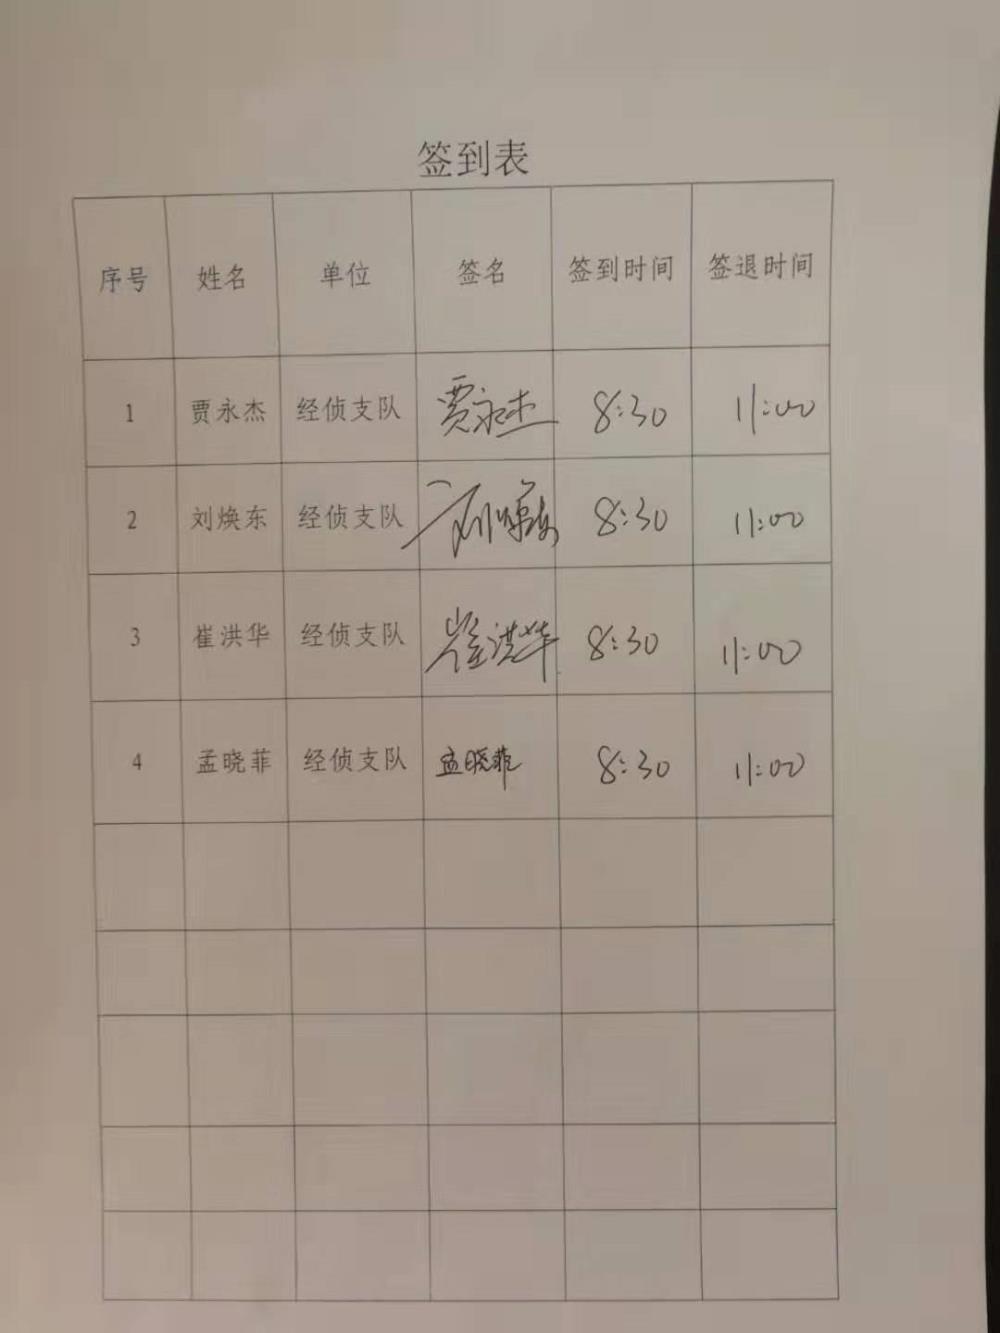 签到表
序号 姓名 单位 签名 签到时间 签退时间
1 贾永杰 经侦支队 贾永杰 8:30 11:00
2 刘焕东 经侦支队 刘焕东 8:30 11:00
3 崔洪华 经侦支队 崔洪华 8:30 11:00
4 孟晓菲 经侦支队 孟晓菲 8:30 11:00